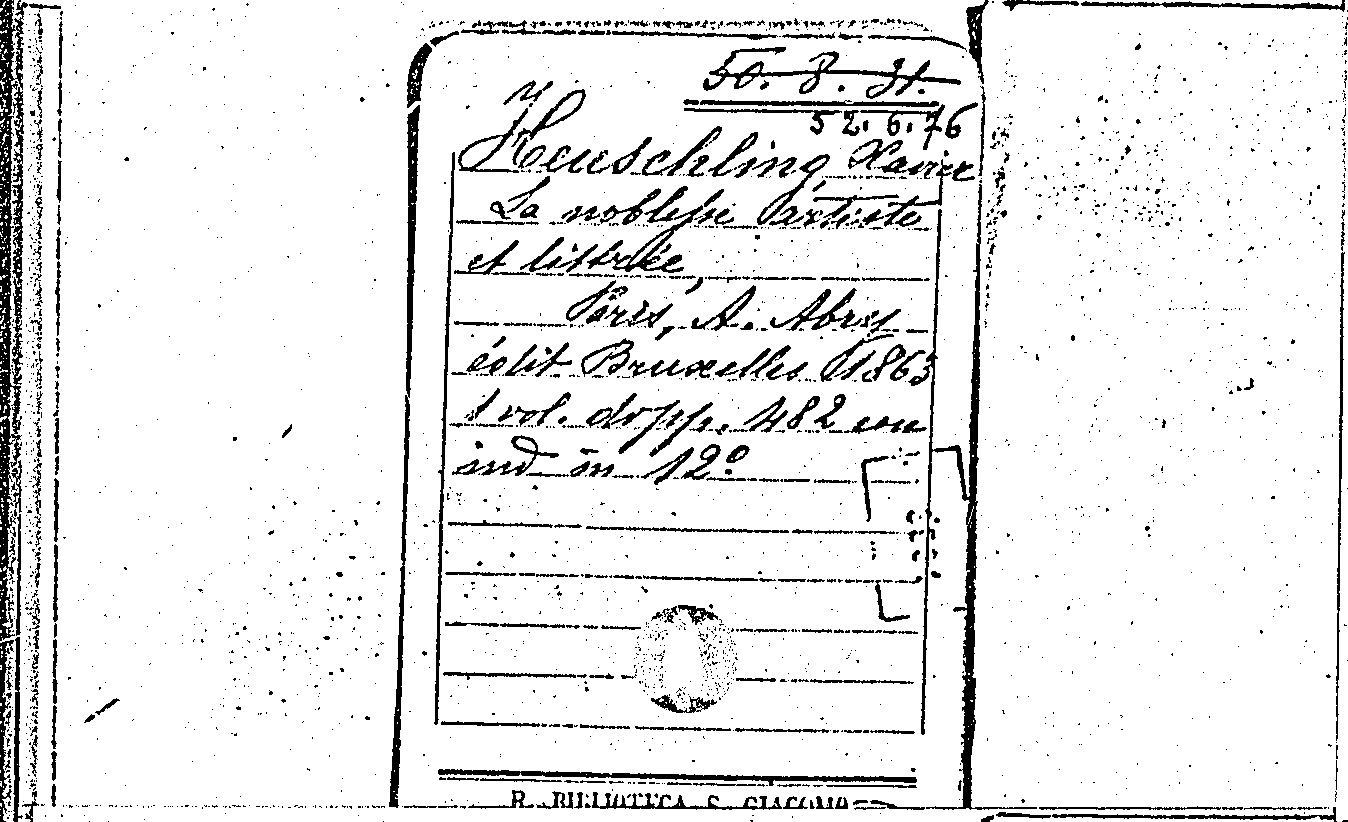 50. 8. 31.
52. 6. 76
Heuschling, Xavier
La noblesse artiste
et littrée,
Paris, A.
édit Bruxelles 1863
1 vol. dopp. 482 con
ind in 12º
R. BIBLIOTECA S. GIACOMO